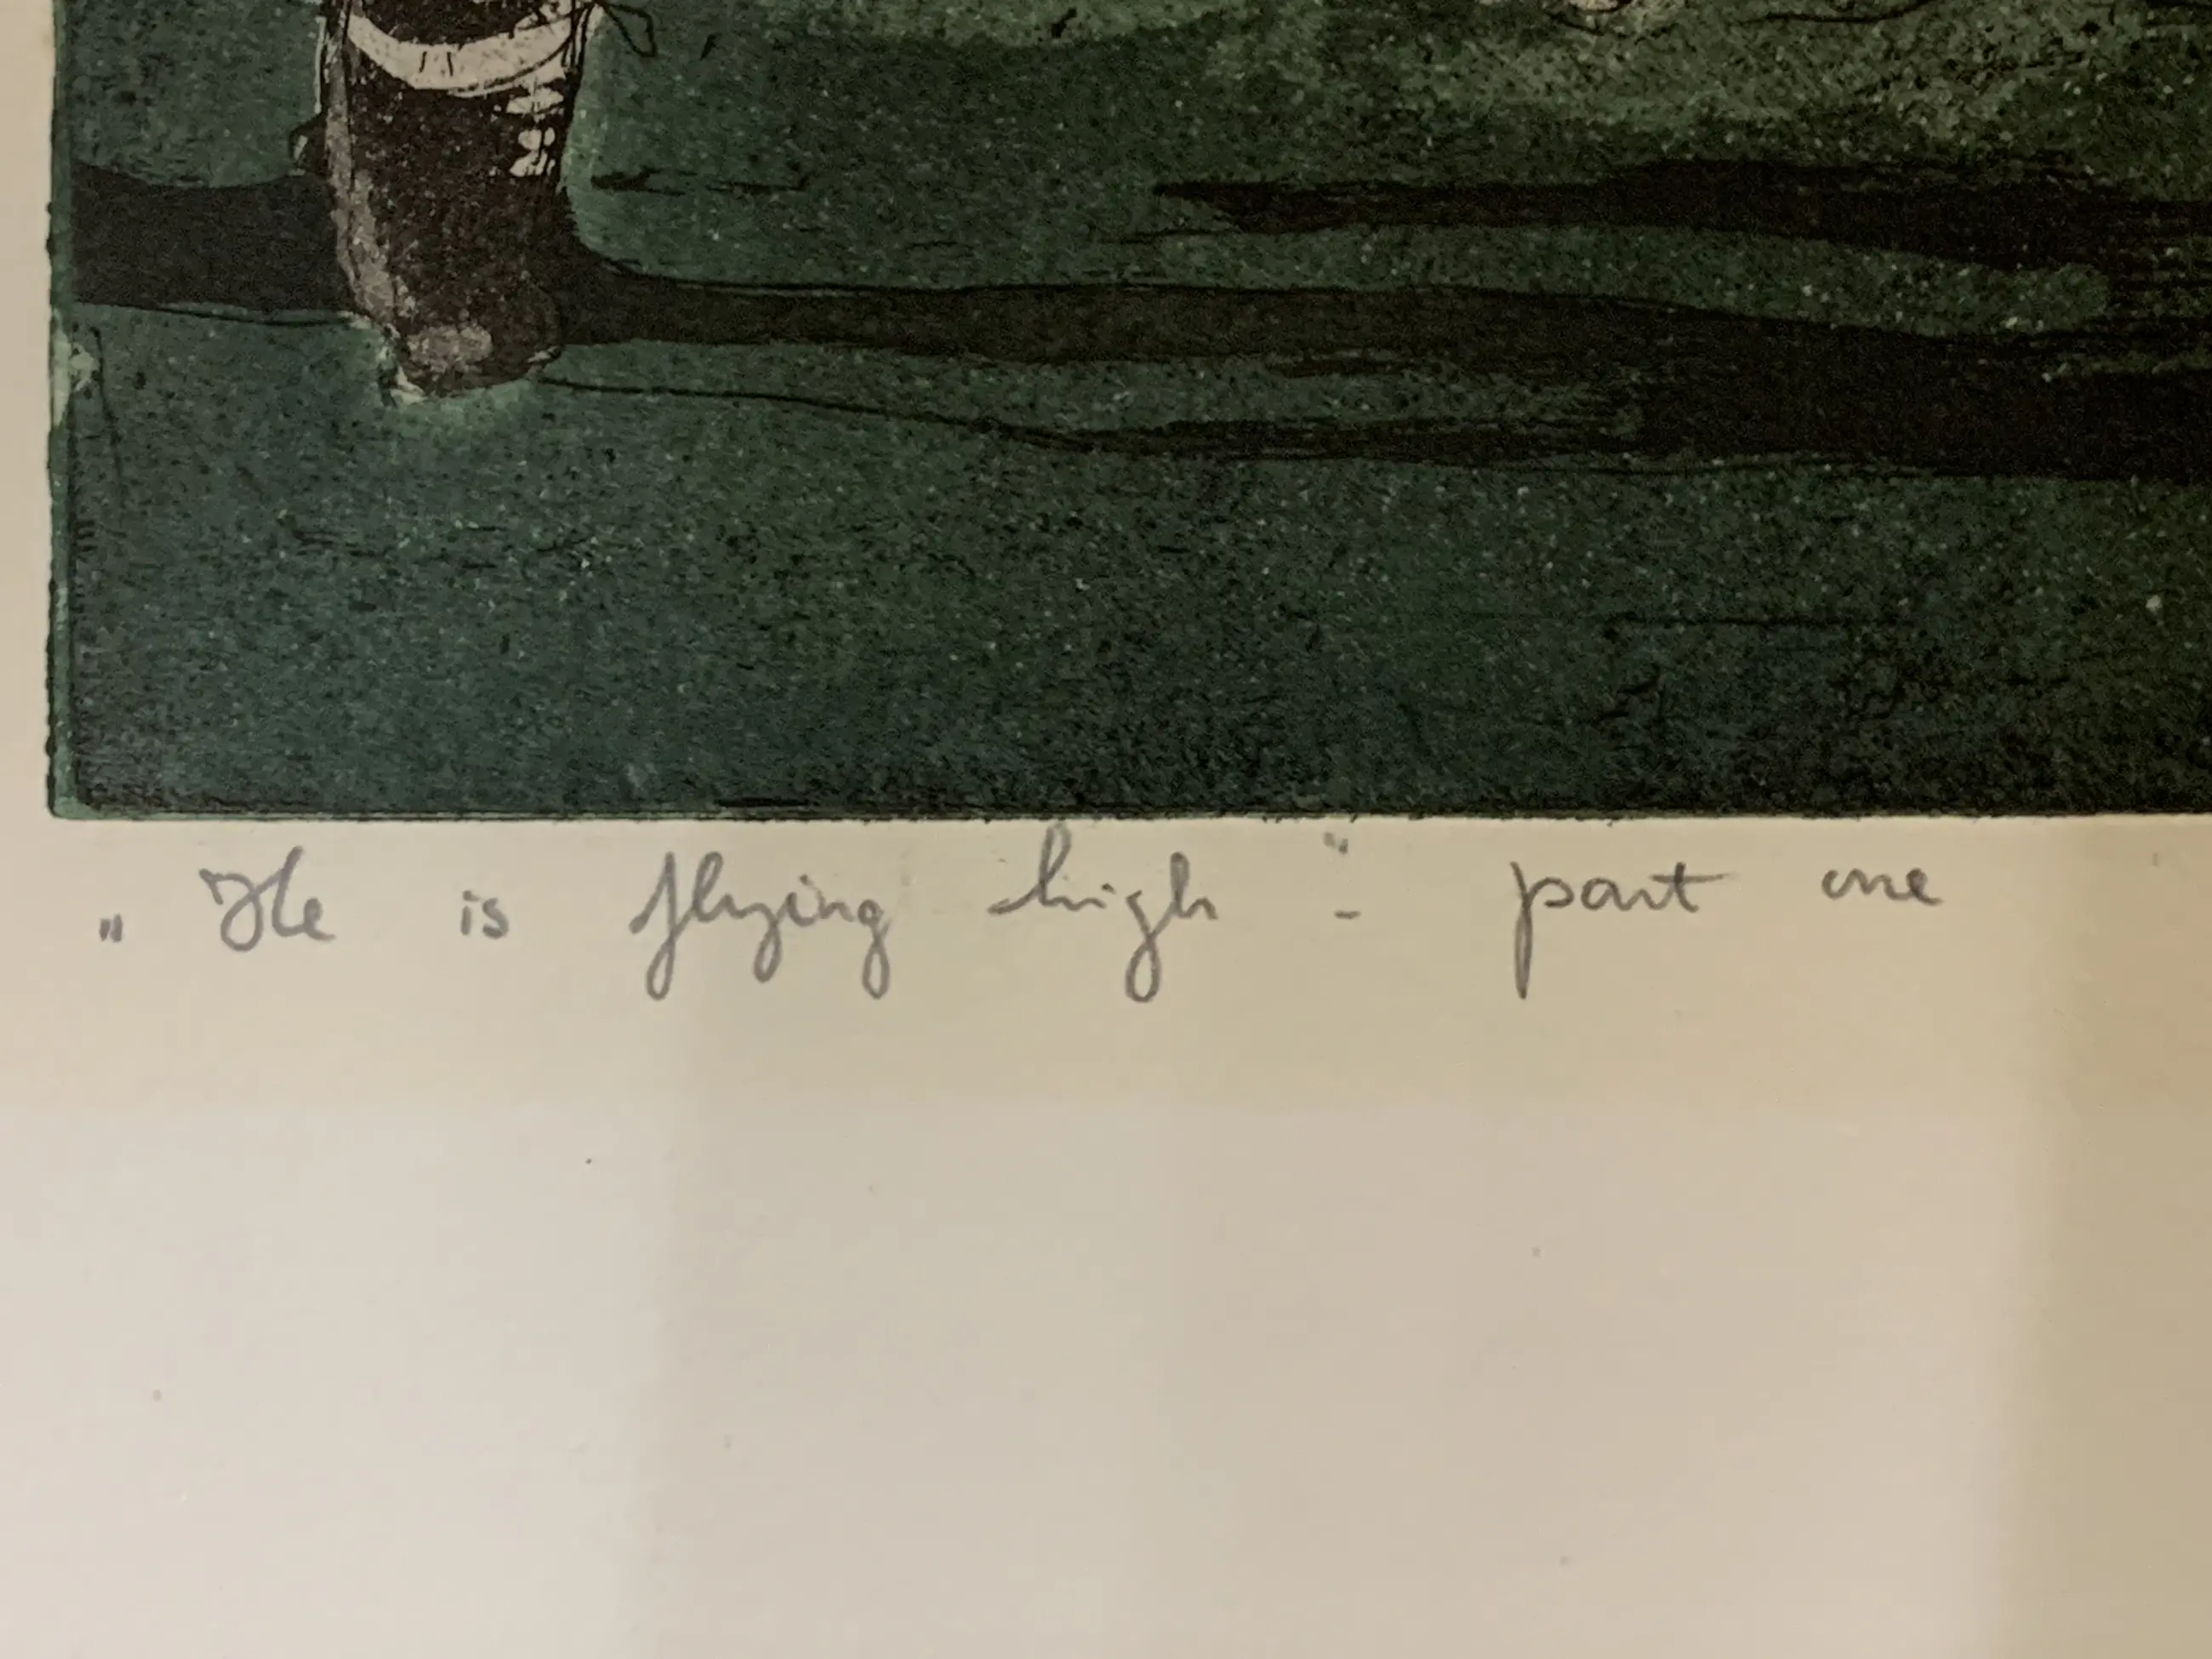 „He is flying high“ - part one